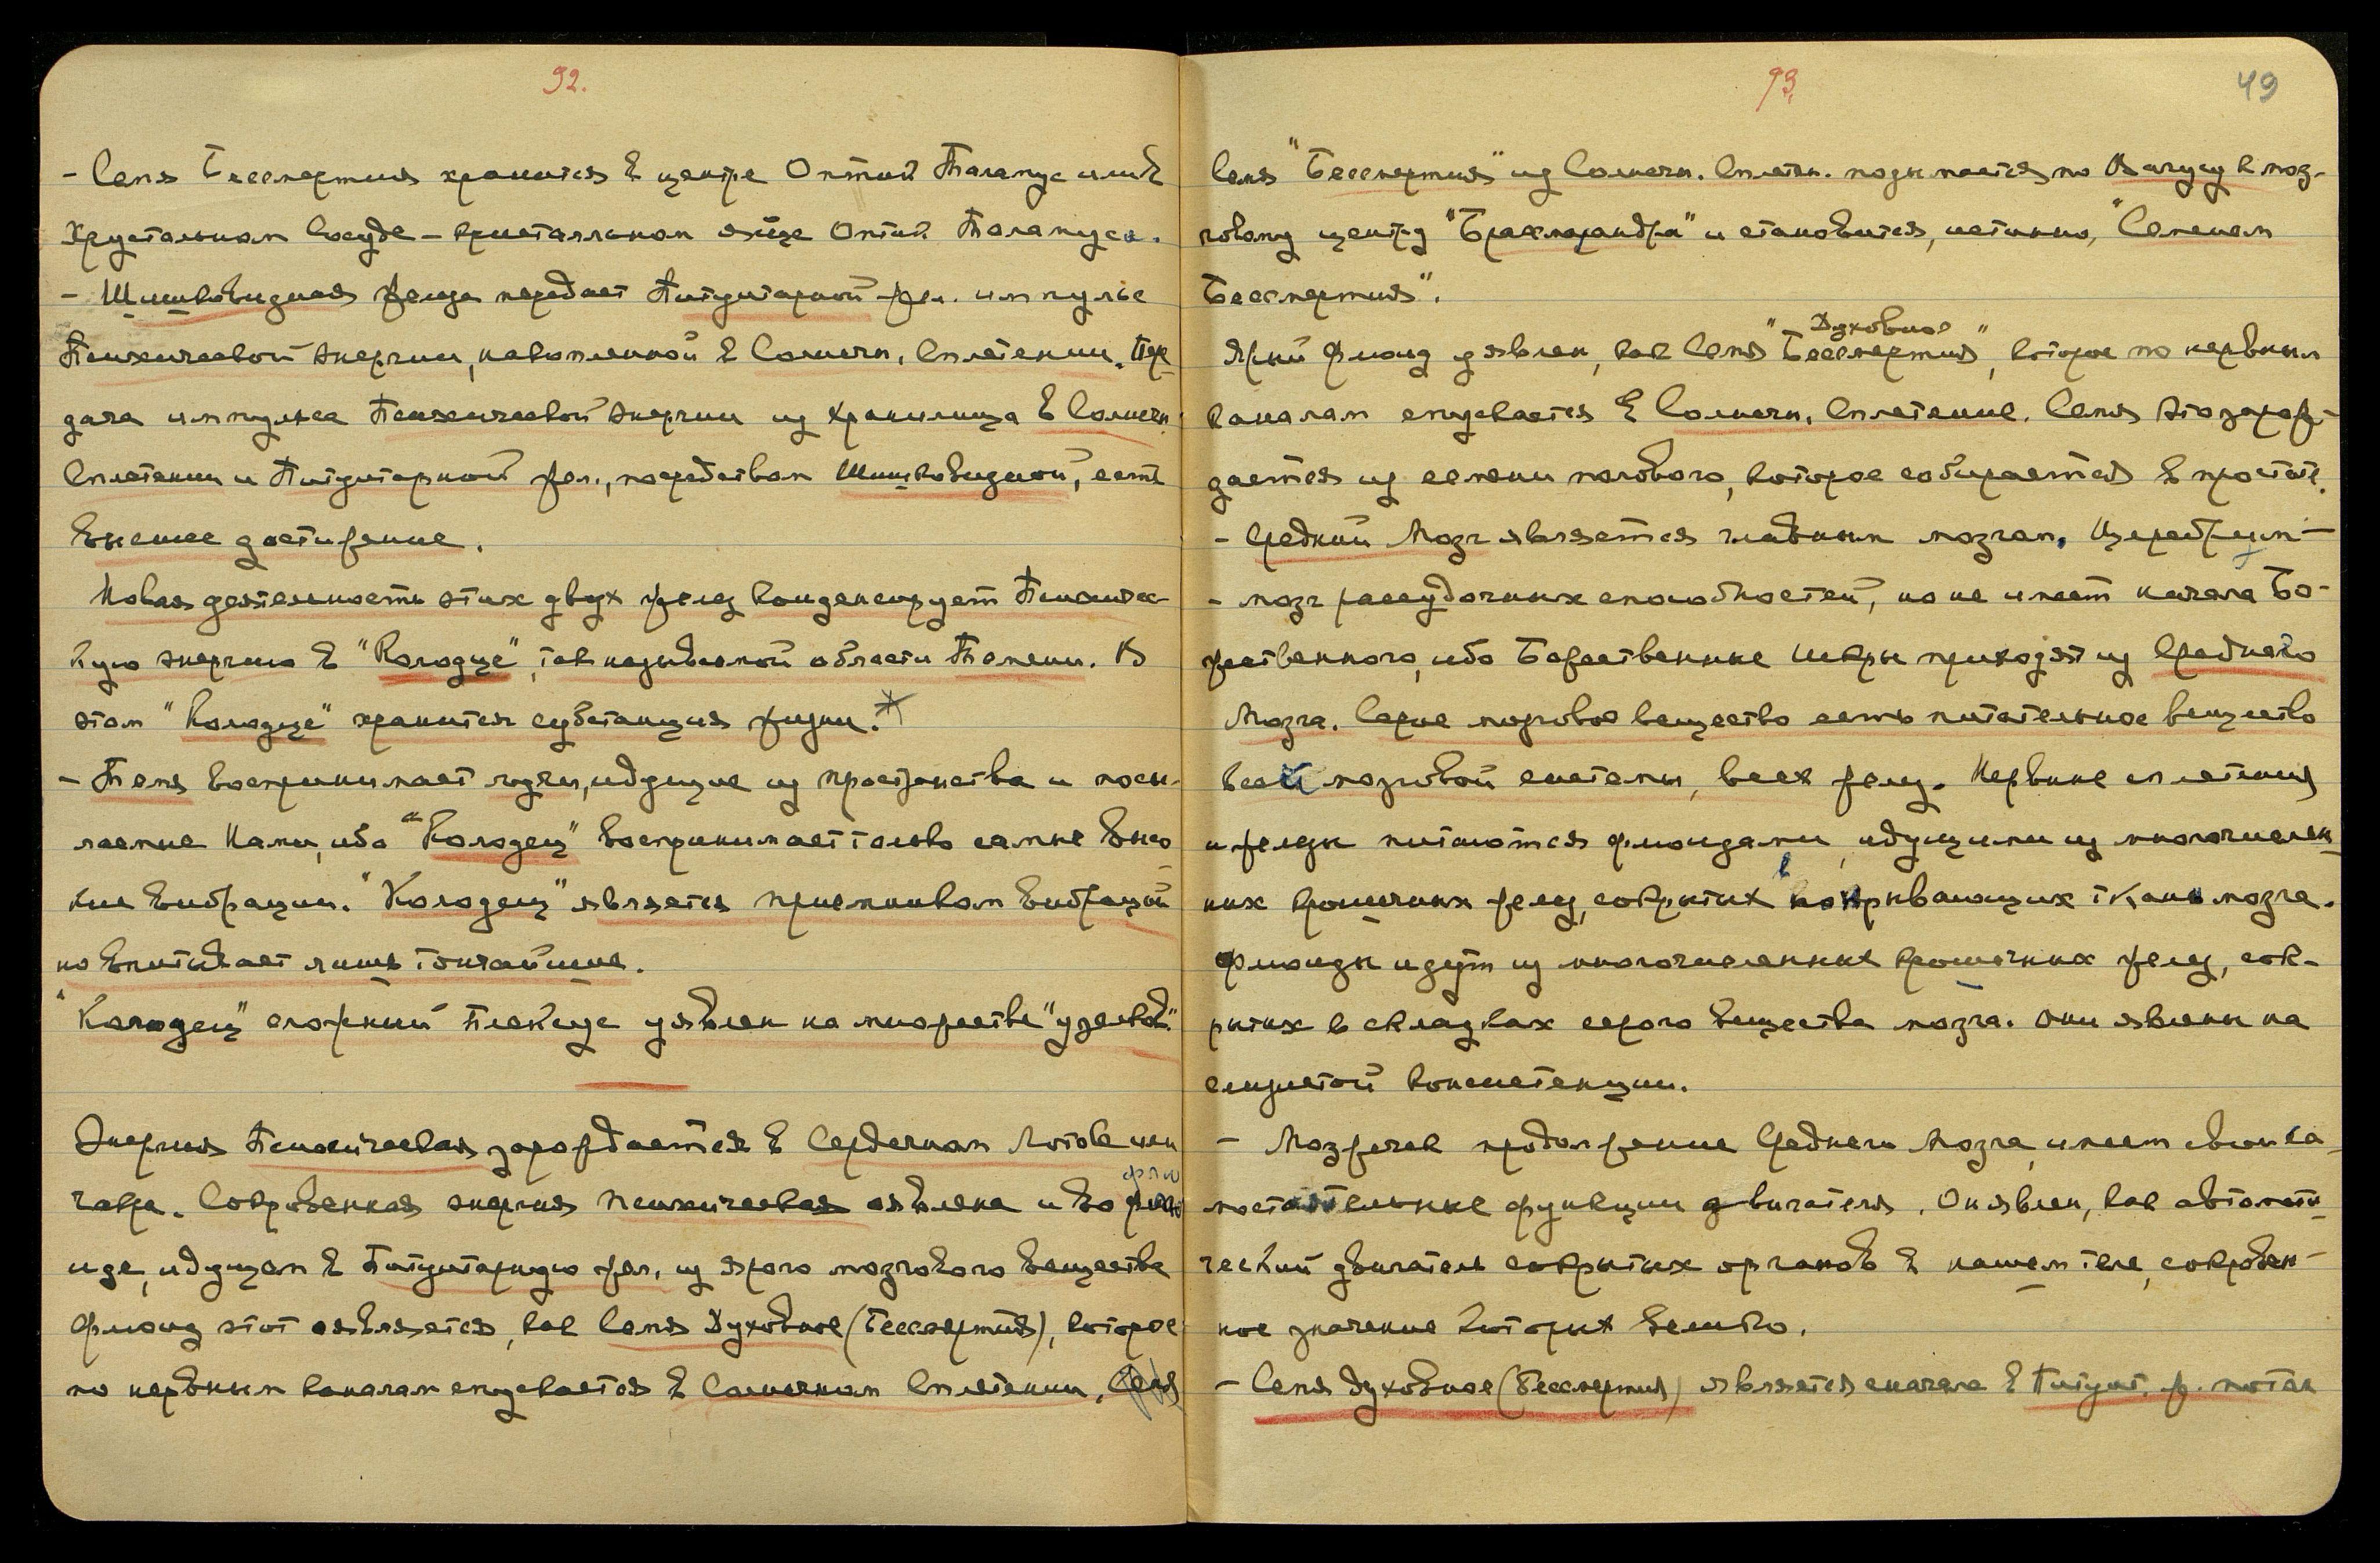 92.
- Семя Бессмертия хранится в центре Оптик Таламус или в
Хрустальном Сосуде - кристальном яйце Оптик Таламуса.
- Шишковидная железа передает Питуитарной жел. импульс
Психической энергии, накопленной в Солнечн. Сплетении. Пере
дача импульса Психической энергии из хранилища в Солнечн.
Сплетении и Питуитарной жел., посредством Шишковидной, есть
высшее достижение.
Новая деятельность этих двух желез конденсирует Психичес-
кую энергию в "Колодце", так называемой области Темени. В
этом "Колодце" хранится субстанция жизни.*
- Темя воспринимает лучи, идущие из пространства и посы-
лаемые Нами, ибо "Колодец" воспринимает только самые высо
кие вибрации. "Колодец" является приемником вибраций
но впитывает лишь тончайшие.
"Колодец" сложный Плексус уявлен на множестве "узелков".
Энергия Психическая зарождается в Сердечном Лотосе или
чакре. Сокровенная энергия психическая явлена и во флю
иде, идущем в Питуитарную жел. из ярого мозгового вещества
Флюид этот является, как Семя Духовное (Бессмертия), которое
по нервным каналам спускается в Солнечном Сплетении. Семя
93.
49
Семя "Бессмертия" из Солнечн. Сплетен. подымается по Вагусу к моз-
говому центру "Брахмарандра" и становится, истинно, "Семенем
Бессмертия".
Духовное
Ярый флюид уявлен, как Семя "Бессмертия", которое по нервным
каналам спускается в Солнечн. Сплетение. Семя это зарож-
дается из семени полового, которое собирается в простате.
- Средний Мозг является главным мозгом. Церебрум -
- мозг рассудочных способностей, но не имеет начала Бо-
жественного, ибо Божественные Искры приходят из Среднего
Мозга. Серое мозговое вещество есть питательное вещество
всей мозговой системы, всех желез. Нервные сплетения
и железы питаются флюидами, идущими из многочислен
ных крошечных желез, сокрытых в покрывающих тканях мозга.
Флюиды идут из многочисленных крошечных желез, сок-
рытых в складках серого вещества мозга. Они явлены на
слизистой консистенции.
- Мозжечек продолжение Среднего Мозга, имеет свои са
мостоятельные функции двигателя. Он явлен, как автомати
ческий двигатель сокрытых органов в нашем теле, сокровен-
ное значение которых велико.
- Семя духовное (Бессмертия) является сначала в Питуит. ж. потом